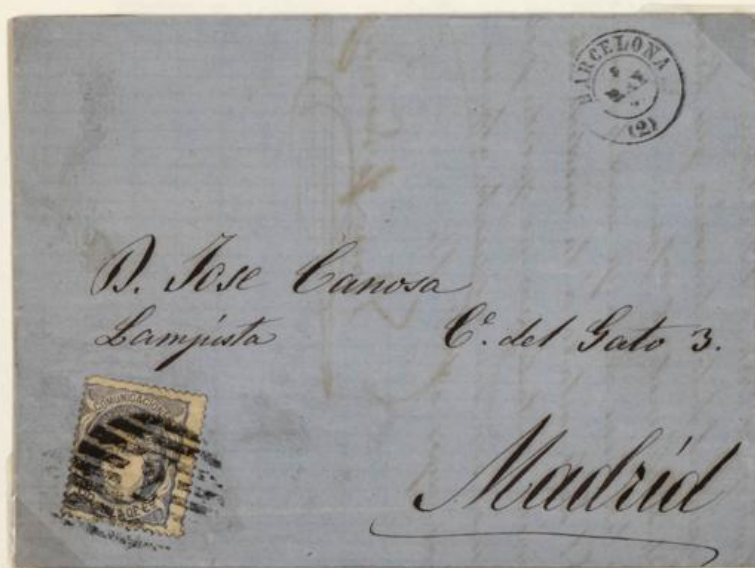 BARCELONA
(2)
D. Jose Canosa
Lampista C.e del Gato 3.
Madrid
COMUNICACIONES